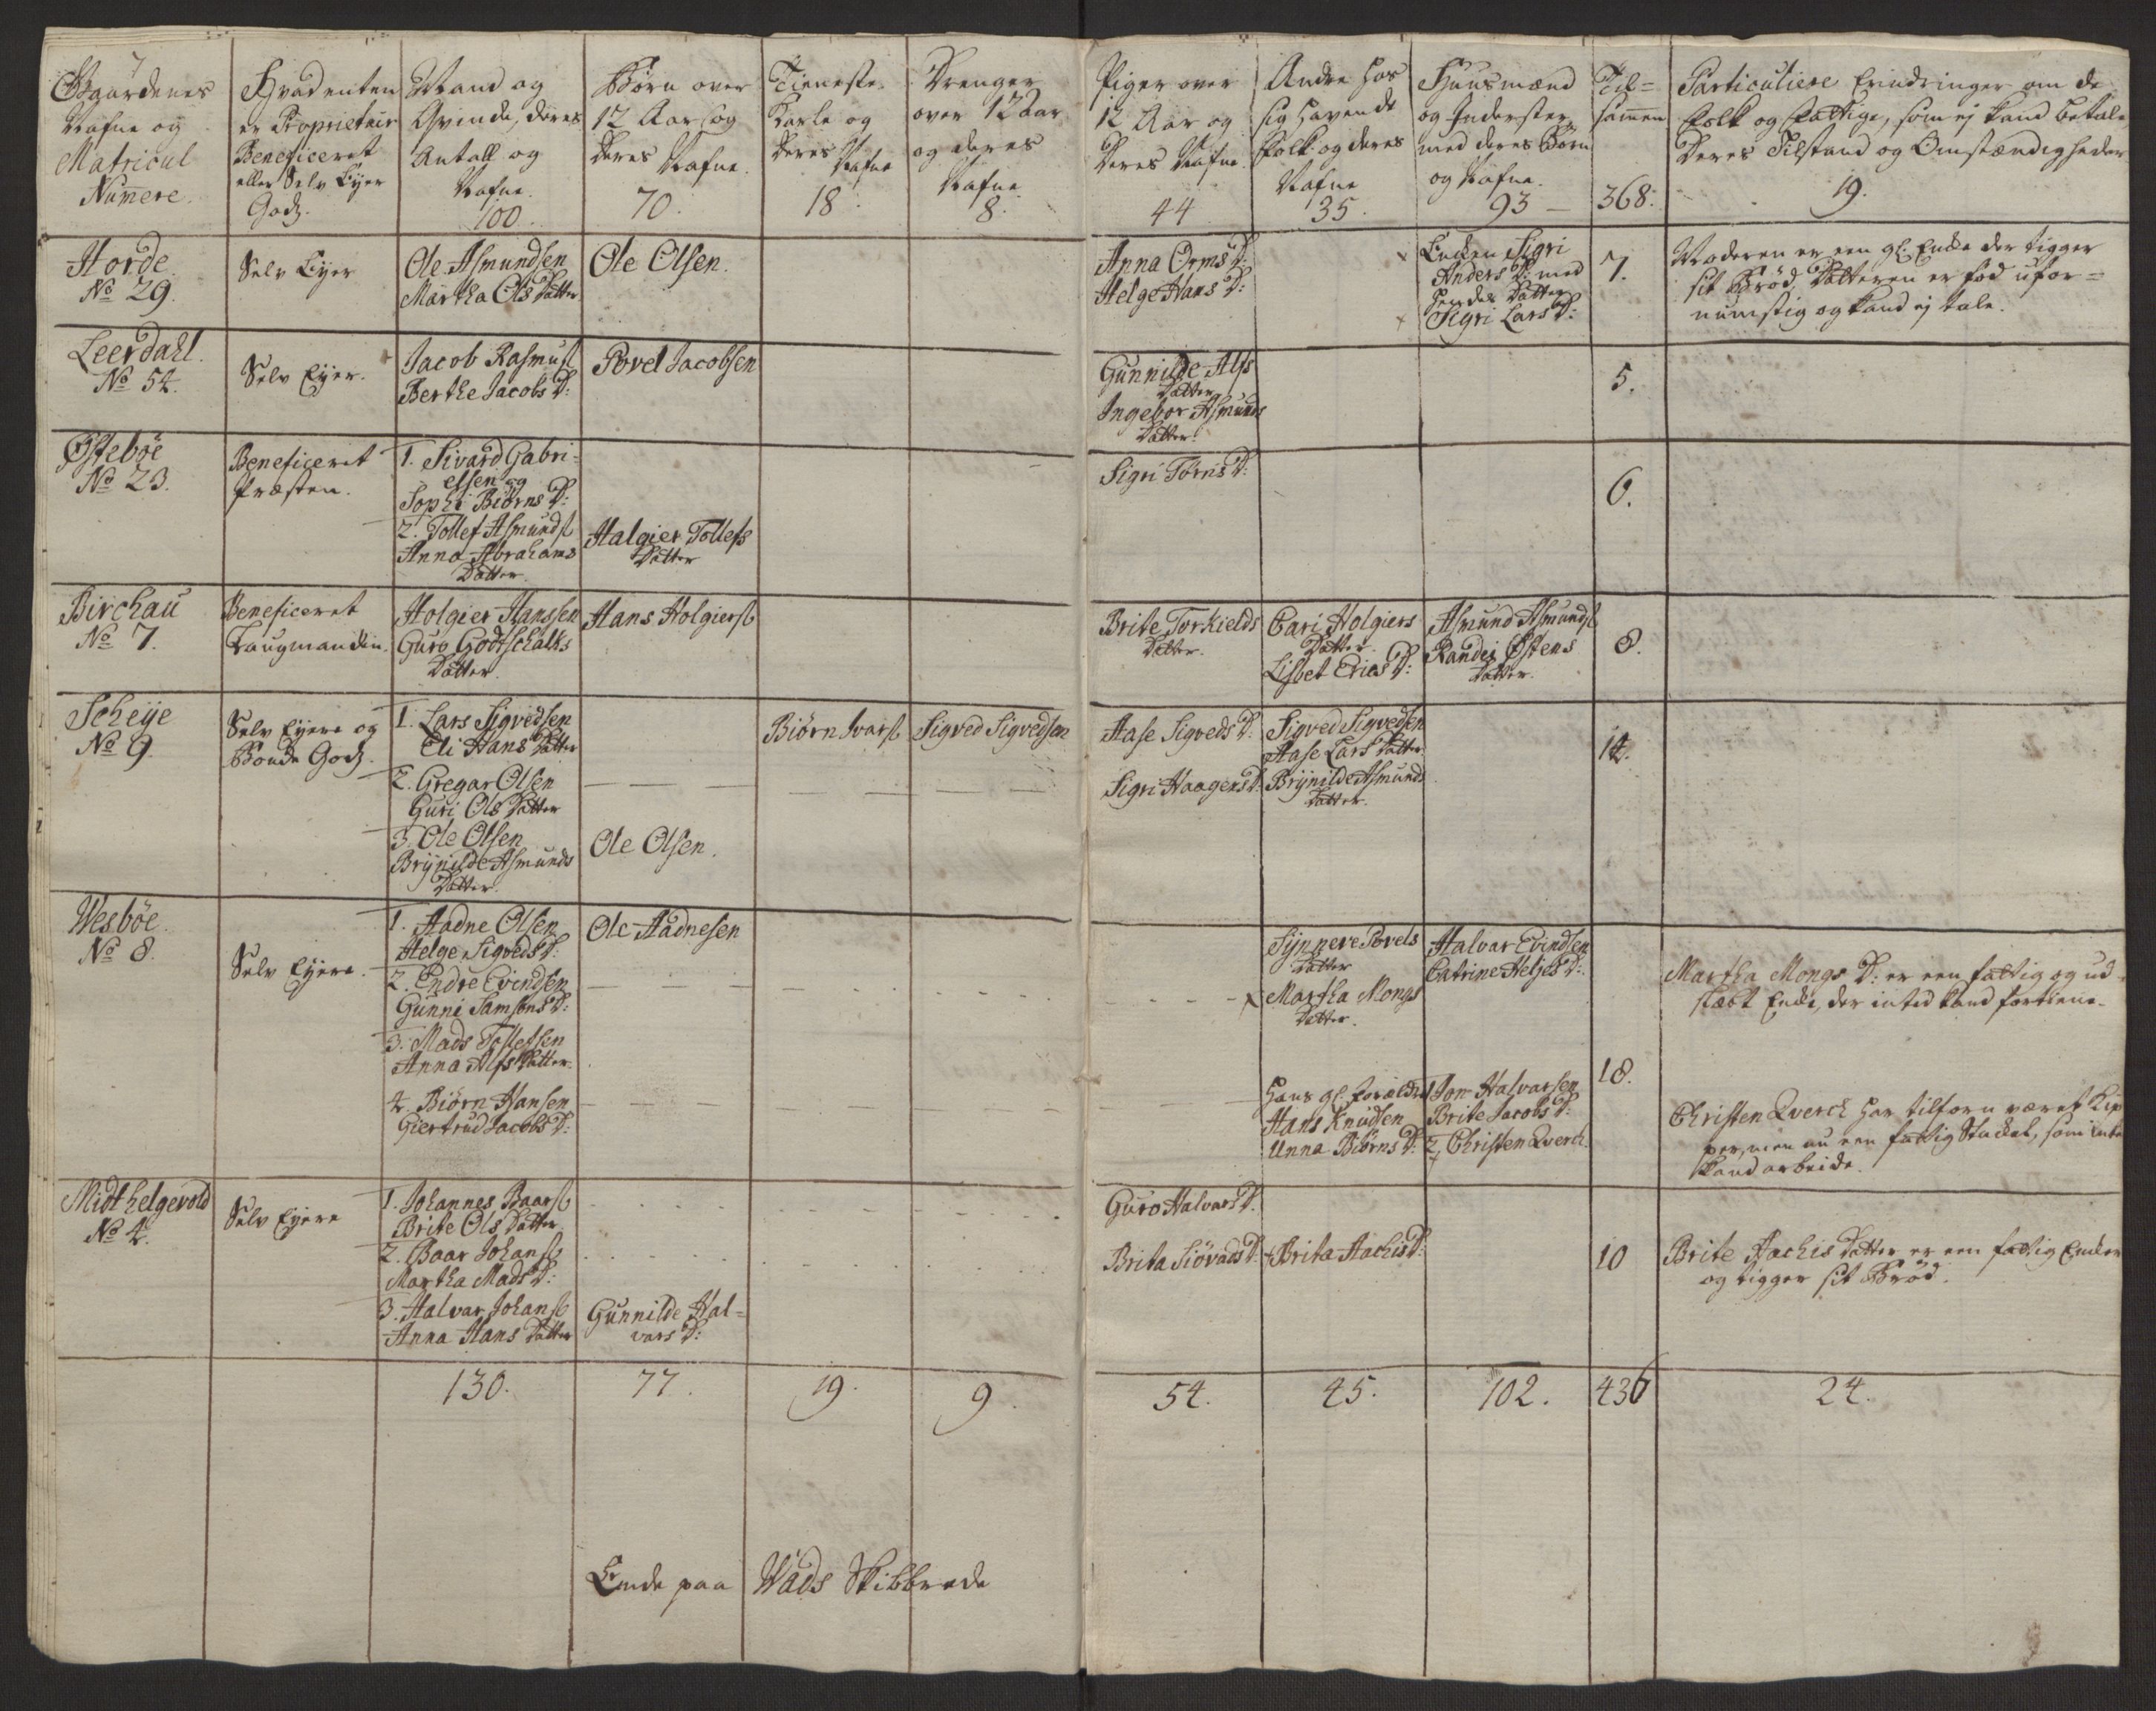 Gaardenes
Nafne og
Matricul
Numere.
Hvad enten
er Proprietair
Beneficeret
eller Selv Eyer
Godz.
Mand og
Qvinde, deres
Antall og
Nafne
100.
Børn over
12 Aar og
deres Nafne.
70.
Tieneste
Karle og
deres Nafne
18.
Drenger
over 12 Aar
og deres
Nafne.
8.
Piger over
12 Aar og
deres Nafne.
44
Andre hos
sig havende
Folk og deres
Nafne
35.
Huusmænd
og Inderster
med deres Børn
og Nafne.
93
Til=
samen
368.
Particuliere Erindringer om de
Folk og fattige, som ej kand betale
deres Tilstand og Omstændigheder
19.
Horde
No 29.
Selv Eyer
Ole Asmundsen
Martha Ols Datter
Ole Olsen.
Anna Orms D:
Helge Hans D:
x Enken Sigri
Anders D: med
hendes Datter
x Sigri Lars D:
7.
Moderen er een gl. Enke der tigger
sit Brød, Datteren er fød ufor=
numstig og kand ej tale.
Leerdahl.
No 54.
Selv Eyer.
Jacob Rasmuss
Berthe Jacobs D:
Povel Jacobsen
Gunnilde Alfs
Datter
Ingebor Asmunds
Datter.
5.
Østebøe
No 23.
Beneficeret
Præsten.
1. Sivard Gabri=
elsen og
Sophi Biørns D:
2. Tollef Asmunds
Anna Abrahams
Datter
Halgier Tollefs
Datter
Sigri Tørris D:
6.
Birchau
No 7.
Beneficeret
Laugmanden.
Holgier Hanssen
Guro Godtschalks
Datter.
Hans Holgiers
Brite Torkields
Datter.
Cari Holgiers
Datter.
Lisbet Erics D:
Asmund Asmunds
Randei Østens
Datter.
8.
Scheije
No 9.
Selv Eyere og
Bonde Godz.
1. Lars Sigvedsen
Eli Hans Datter
2. Gregar Olsen
Guri Ols Datter
3. Ole Olsen
Brÿnilde Asmunds
Datter.
Ole Olsen.
Biørn Ivars
Sigved Sigvedsen
Aase Sigveds D:
Sigri Haagens D:
Sigved Sigvedsen
Aase Lars Datter
Brÿnilde Asmunds
Datter.
14.
Wesbøe.
No 8.
Selv Eyere.
1. Aadne Olsen
Helge Sigveds D:
2. Endre Evindsen
Gunni Samsons D:
3. Mads Tollefsen
Anna Alfs Datter.
4. Biørn Hansen
Giertrud Jacobs D:
Ole Aadnesen
Sÿnneve Povels
Datter
x Martha Mongs
Datter.
Hans gl. Forældre
Hans Knudsen
Unna Biørns D:
Halvar Evindsen
Catrine Heljes D:
1 Jon Halvarsen
Brite Jacobs D:
2 Christen Qverch
18.
Martha Mongs D: er een fattig og ud=
slæbt Enke, der intet kand fortiene.
Christen Qverch har tilforn været
men nu een fattig Stackel, som
kand arbeide.
Midthelgevold
No 4.
Selv Eyere
1. Johannes Baars
Brite Ols Datter
2. Baar Johans
Martha Mads D:
3. Halvar Johans
Anna Hans Datter
Gunnilde Hal=
vars D:
Guro Halvars D.
Brita Siøvads D.
+ Brita Aachis D:
10
Brite Aachis Datter er een fattig Enke
og tigger sit Brød.
130.
77.
19.
9.
54.
45.
102.
436
24.
Ende paa Wads Skibbrede